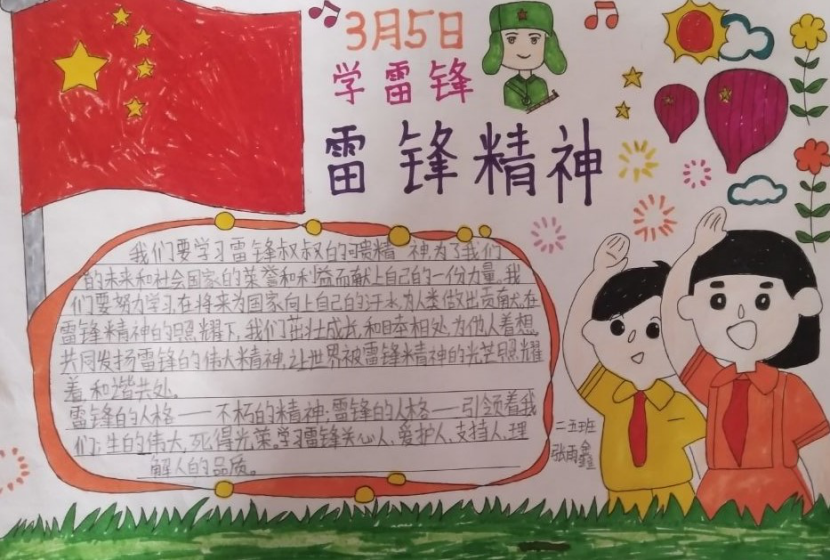 3月5日
学雷锋
雷锋精神
我们要学习雷锋叔叔的可贵精神,为了我们
的未来和社会国家的荣誉和利益而献上自己的一份力量。我
们要努力学习,在将来为国家向上自己的汗水,为人类做出贡献,在
雷锋精神的照耀下,我们茁壮成长,和睦相处,为他人着想,
共同发扬雷锋的伟大精神,让世界被雷锋精神的光芒照耀
着,和谐共处。
雷锋的人格——不朽的精神;雷锋的人格——引领着我
们;生的伟大,死得光荣。学习雷锋关心人,爱护人,支持人,理
解人的品质。
二五班
张雨鑫